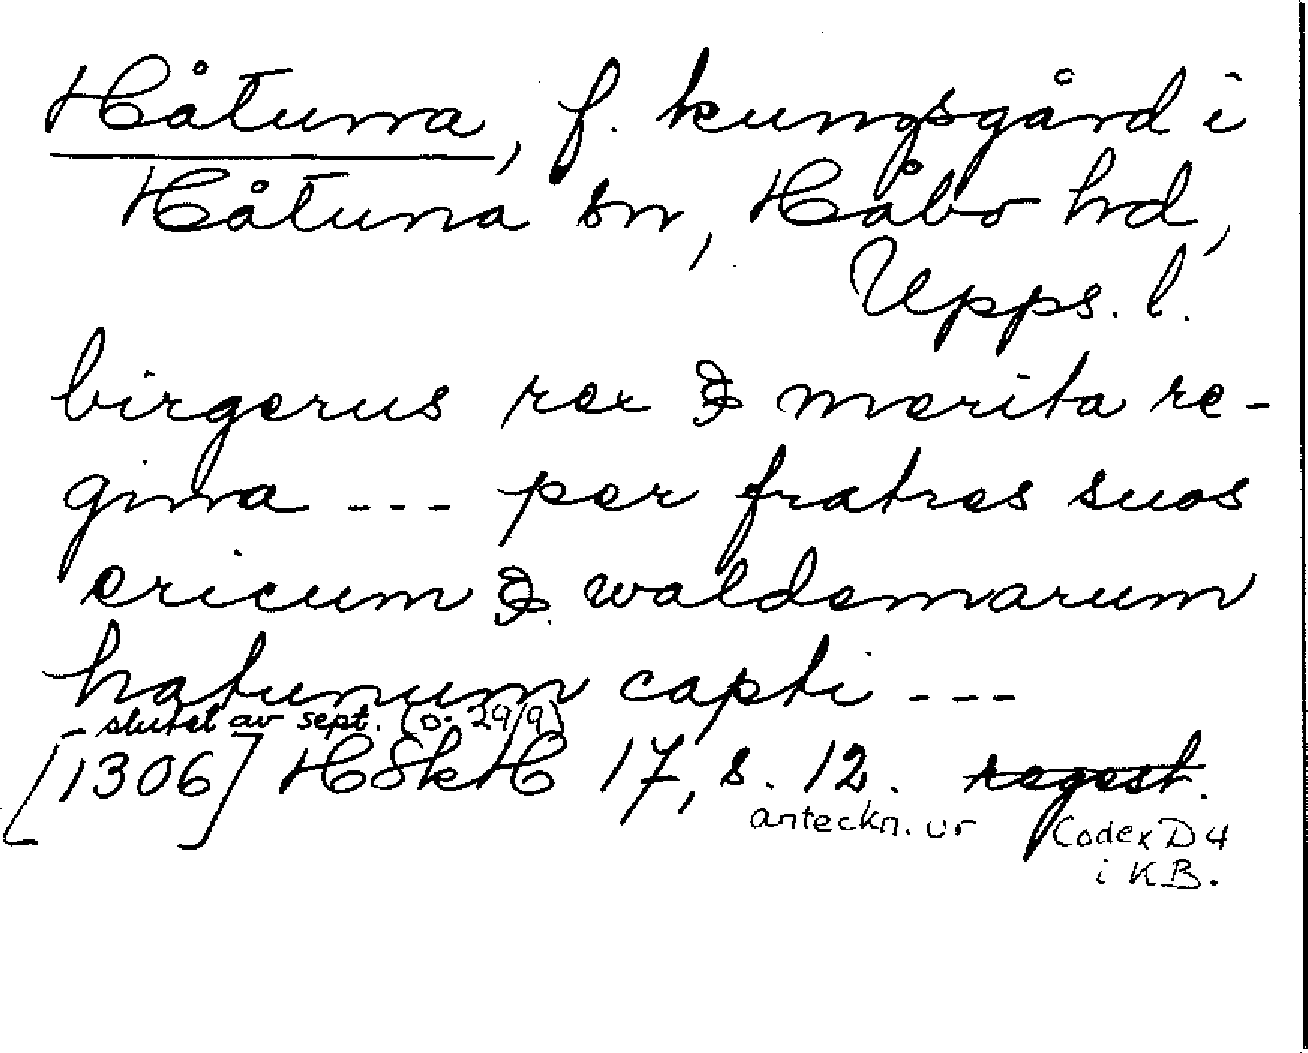 Håtuna, f. kungsgård i
Håtuna sn, Håbo hd,
Upps. l.
birgerus rex & merita re-
gina --- per fratres suos
ericum & waldemarum
hatunum capti ---
slutet av sept. (o. 29/9)
[1306] HSkH 17, s. 12. regest.
anteckn. ur Codex D4
i KB.